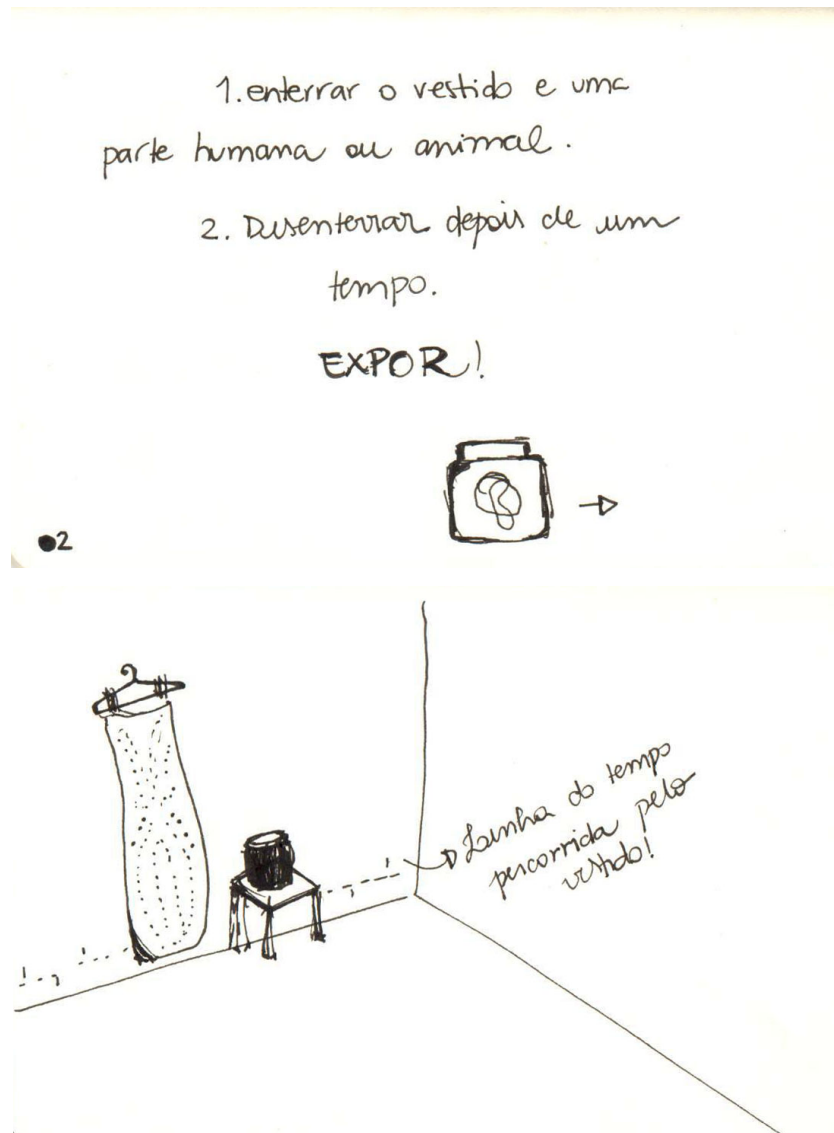 1. enterrar o vestido e uma
parte humana ou animal.
2. Desenterrar depois de um
tempo.
EXPOR!
●2
Linha do tempo
percorrida pelo
vestido!